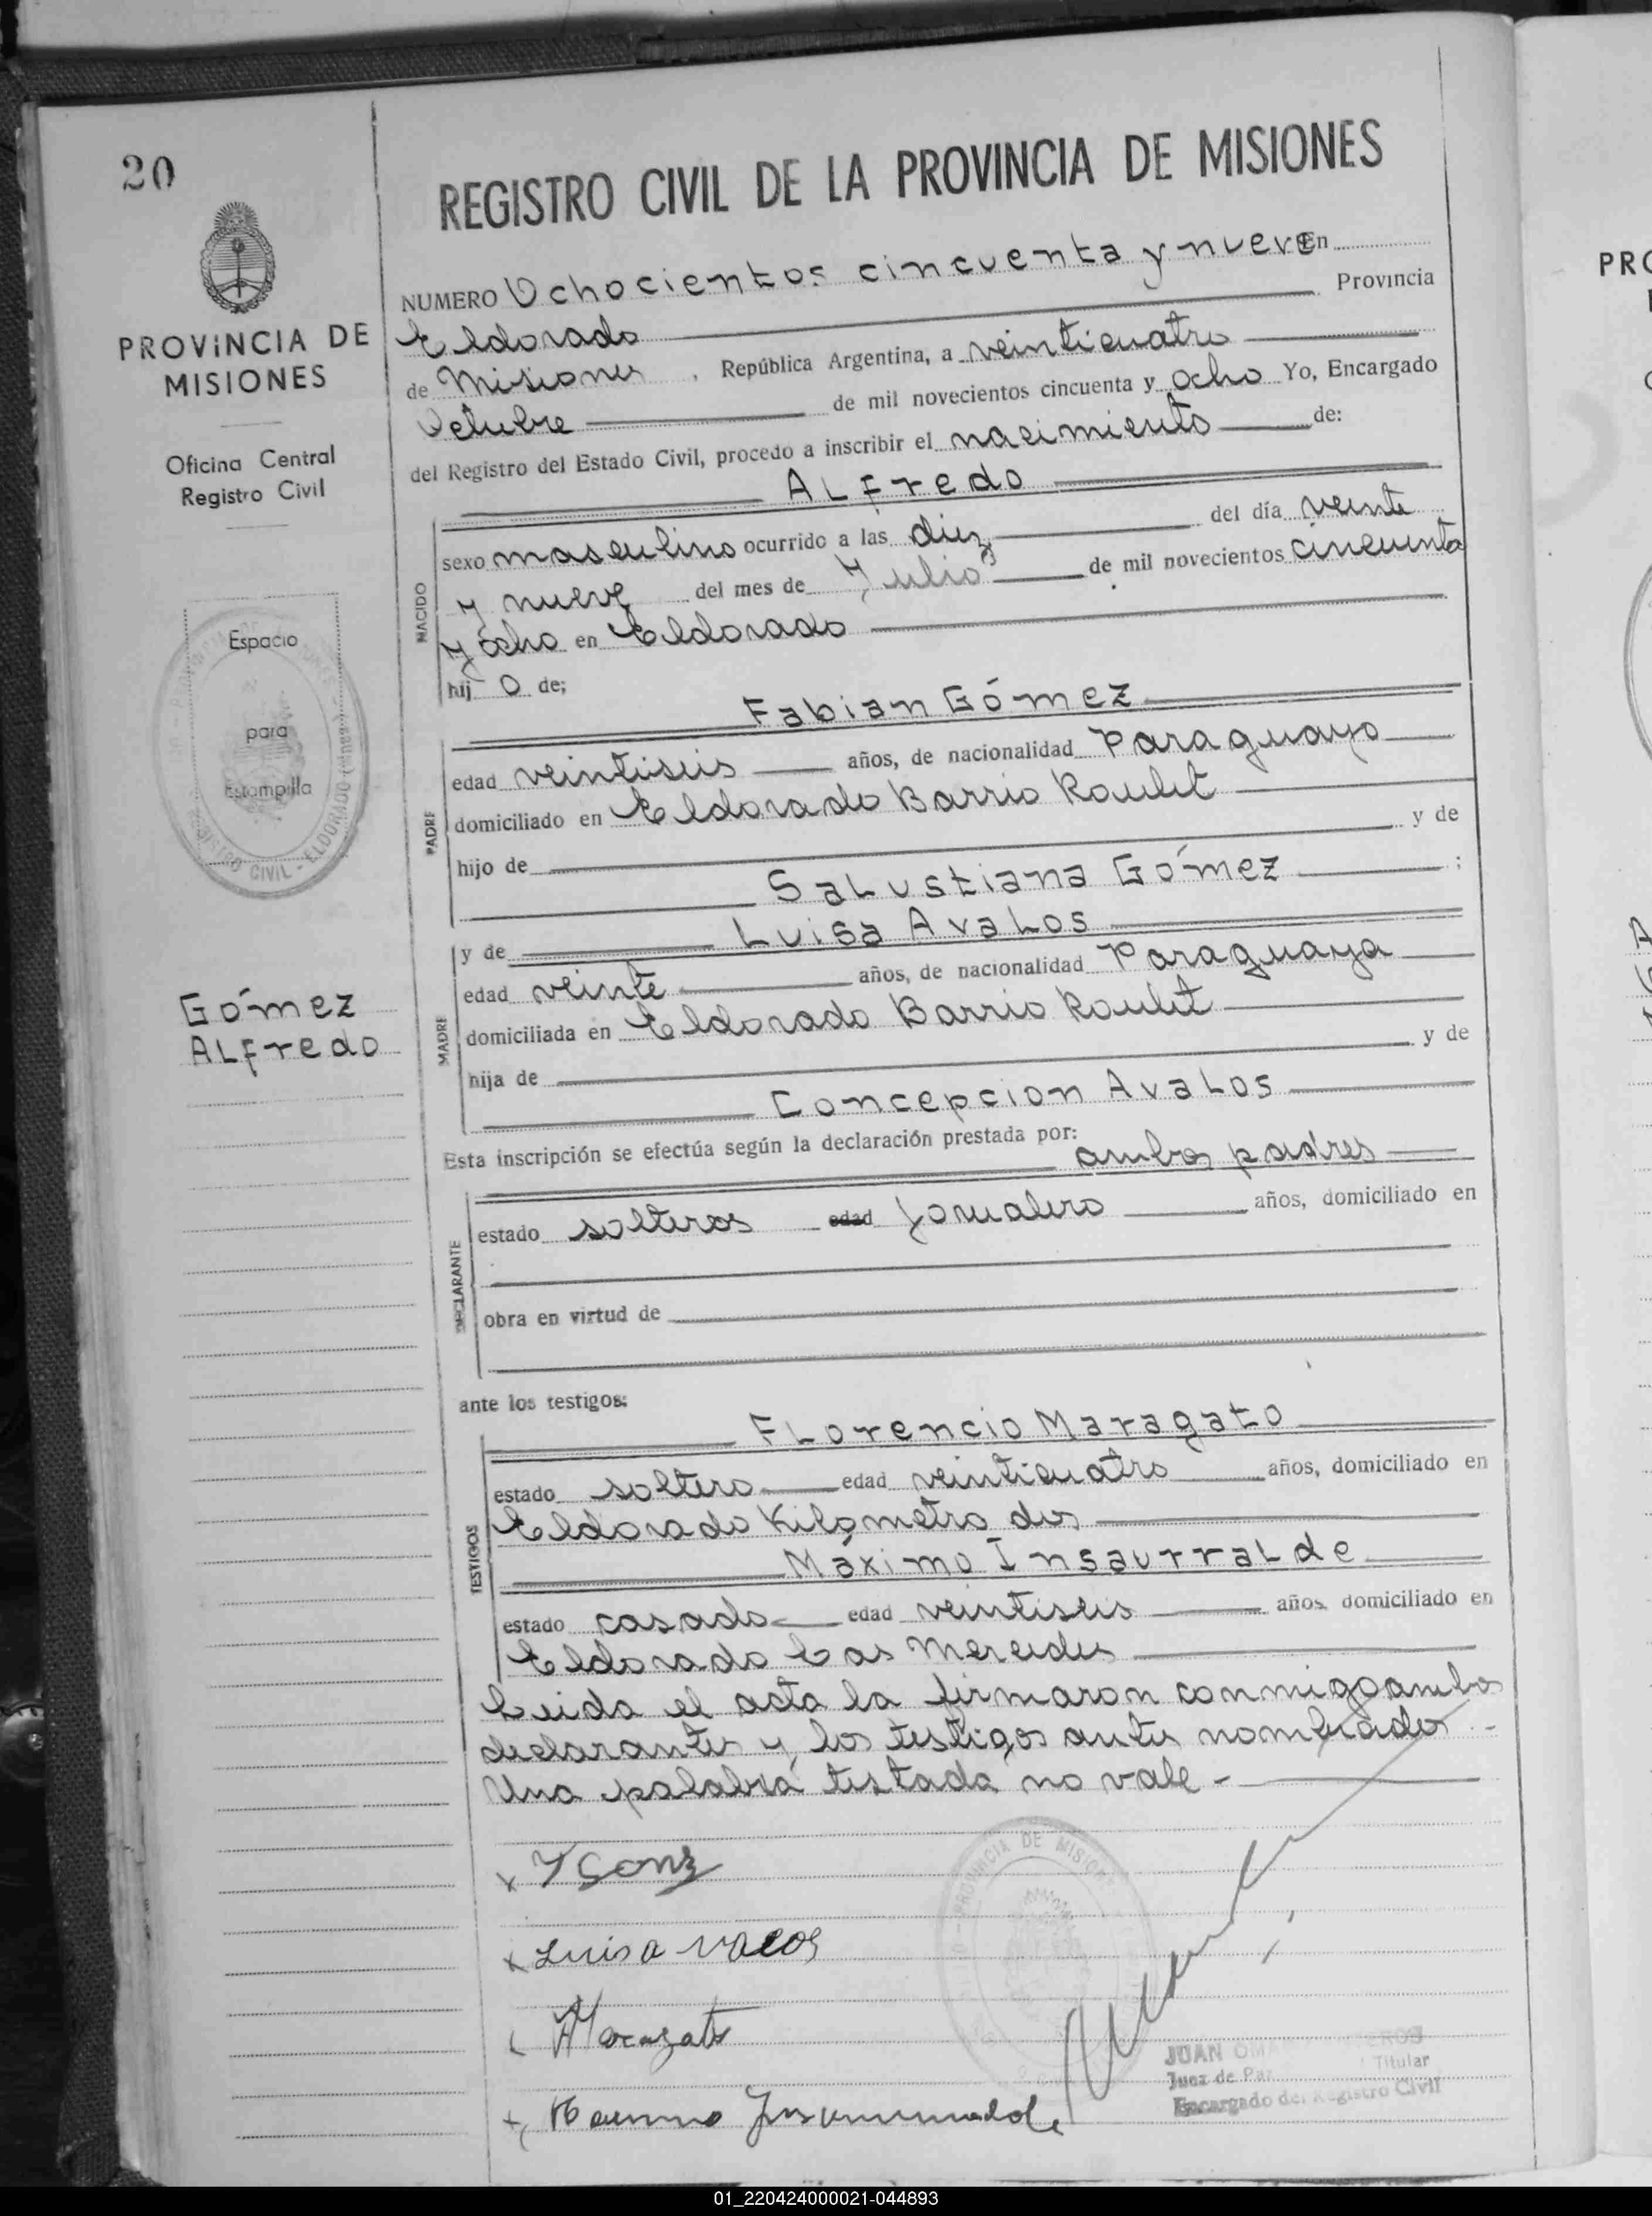 20
REGISTRO CIVIL DE LA PROVINCIA DE MISIONES
PROVINCIA DE
MISIONES
Oficina Central
Registro Civil
Espacio
para
Estampilla
REGISTRO CIVIL - ELDORADO (Mnes.)
Gómez
ALfredo
NUMERO Ochocientos cincuenta y nueve En
Eldorado Provincia
de Misiones, República Argentina, a veinticuatro
Octubre de mil novecientos cincuenta y ocho Yo, Encargado
del Registro del Estado Civil, procedo a inscribir el nacimiento de:
ALfredo
NACIDO
sexo masculino ocurrido a las diez del día veinte
y nueve del mes de Julio de mil novecientos cincuenta
y ocho en Eldorado
hij o de;
Fabian Gómez
PADRE
edad veintiseis años, de nacionalidad Paraguayo
domiciliado en Eldorado Barrio Roulet
hijo de y de
SaLustiana Gómez ;
y de Luisa AvaLos
MADRE
edad veinte años, de nacionalidad Paraguaya
domiciliada en Eldorado Barrio Roulet
hija de y de
Concepcion AvaLos
Esta inscripción se efectúa según la declaración prestada por:
ambos padres
DECLARANTE
estado solteros edad Jornalero años, domiciliado en
obra en virtud de
ante los testigos:
FLorencio Maragato
TESTIGOS
estado soltero edad veinticuatro años, domiciliado en
Eldorado Kilometro dos
Máximo InsaurraLde
estado casado edad veintiseis años, domiciliado en
Eldorado Las Mercedes
Leida el acta la firmaron conmigo ambos
declarantes y los testigos antes nombrados -
Una palabra testada no vale -
PROVINCIA DE MISIONES
x Luisa valos
x Maragato
JUAN
Juez de Paz Titular
Encargado del Registro Civil
PRO
01_220424000021-044893